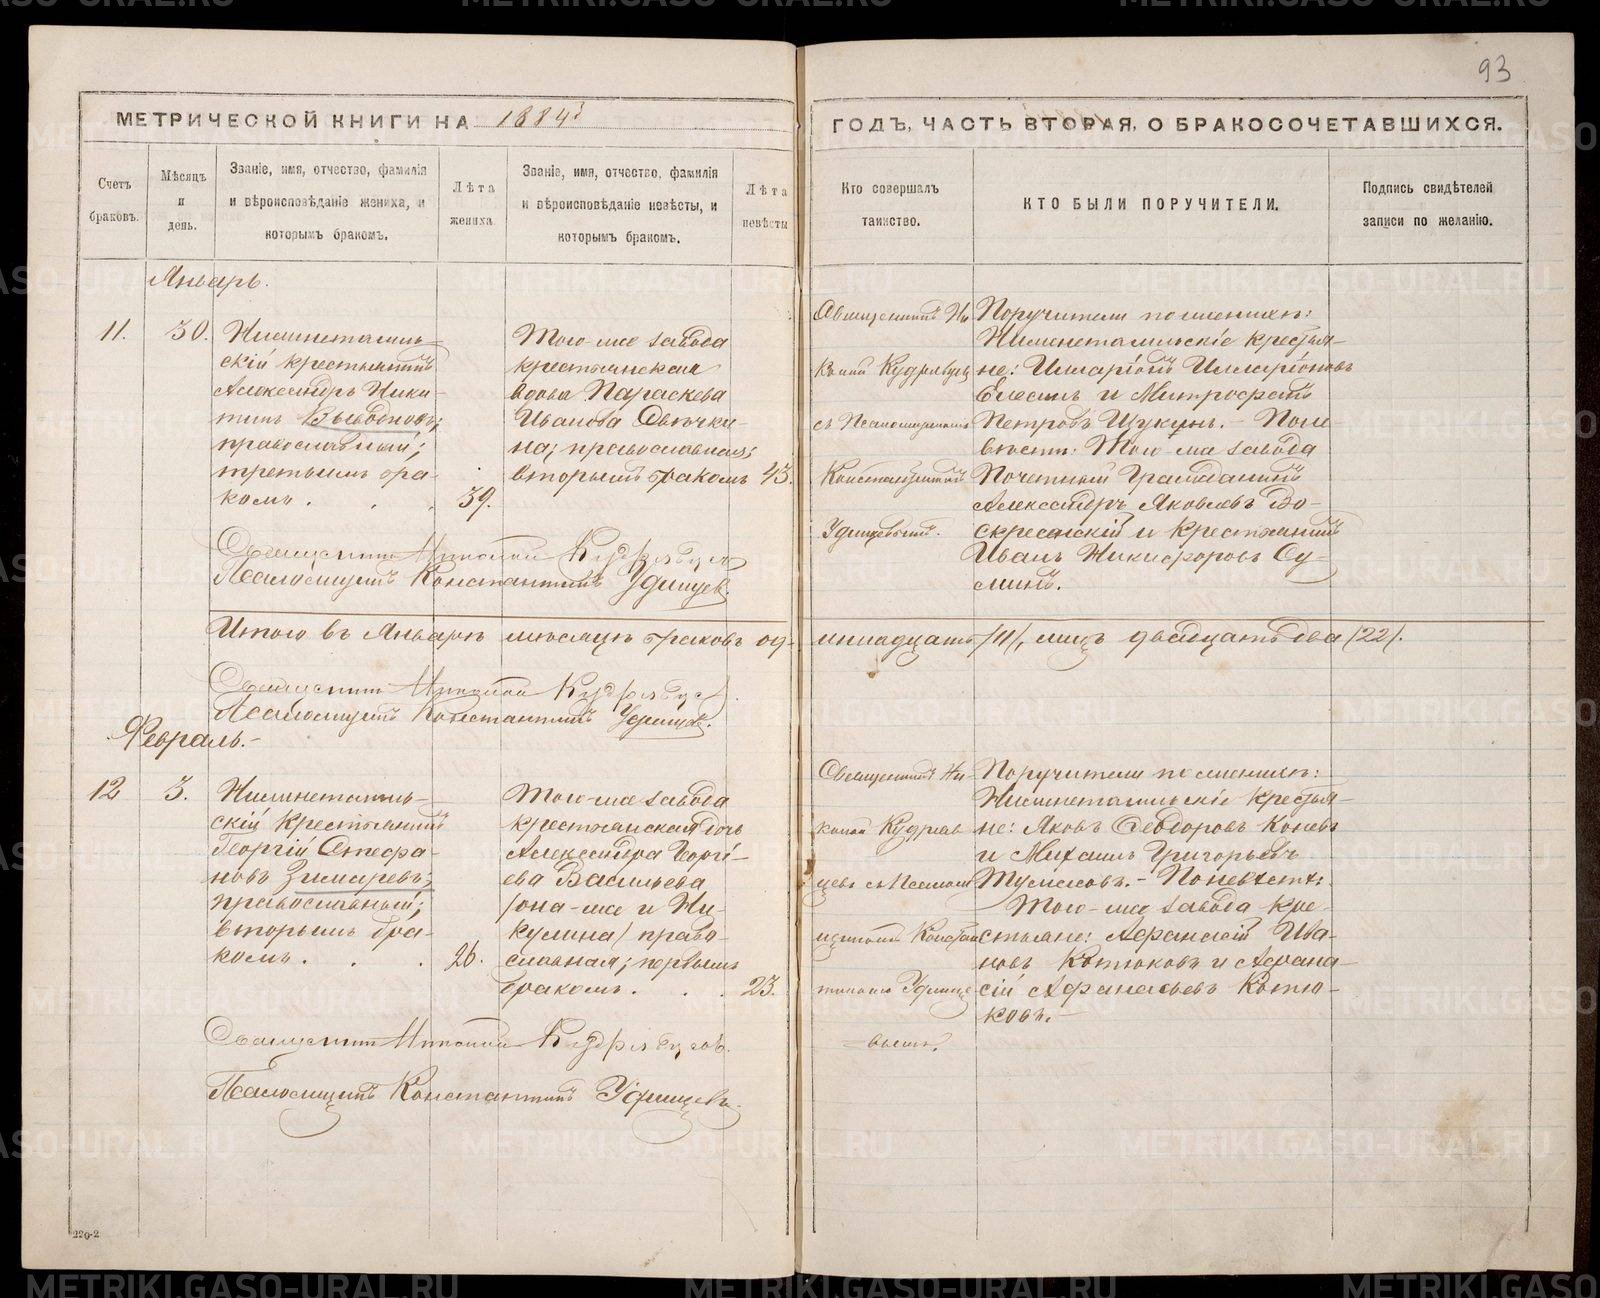 93
МЕТРИЧЕСКОЙ КНИГИ НА 1884й
ГОДЪ, ЧАСТЬ ВТОРАЯ, О БРАКОСОЧЕТАВШИХСЯ.
Счетъ браковъ.
Мѣсяцъ и день.
Званіе, имя, отчество, фамилія
и вѣроисповѣданіе жениха, и
которымъ бракомъ.
Лѣта жениха
Званіе, имя, отчество, фамилія
и вѣроисповѣданіе невѣсты, и
которымъ бракомъ.
Лѣта невѣсты
Кто совершалъ
таинство.
КТО БЫЛИ ПОРУЧИТЕЛИ.
Подпись свидѣтелей
записи по желанію.
Январь.
11.
30.
Нижнетагиль-
скій крестьянинъ
Александръ Ники-
тинъ
православный;
третьимъ бра-
комъ.
39.
Того-же завода
крестьянская
вдова Параскева
Иванова Овечки-
на; православная;
вторымъ бракомъ
43.
Священникъ Ни
колай Кудрявцев
съ Псаломщикомъ
Константиномъ
Удинцевымъ.
Поручители по женихѣ:
Нижнетагильскіе крестья-
не: Иларіонъ Иларіоновъ
и Митрофанъ
Петровъ Щукинъ. - По не-
вѣстѣ: Того-же завода
Почетный Гражданинъ
Александръ Яковлевъ Во-
скресенскій и крестьянинъ
Иванъ Никифоровъ Су-
линъ.
Священникъ Николай Кудрявцевъ
Псаломщикъ Константинъ Удинцевъ.
Итого въ Январѣ мѣсяцѣ браковъ од-
иннадцать /11/, лицъ двадцать два /22/.
Священникъ Николай Кудрявцевъ.
Псаломщикъ Константинъ Удинцевъ.
Февраль.-
12
3.
Нижнетагиль-
скій Крестьянинъ
Георгій Стефа-
новъ Зимиревъ;
православный;
вторымъ бра-
комъ.
26.
Того-же завода
крестьянская дочь
Александра Георгі-
ева Васильева
/она-же и Ни-
кулина/ право-
славная; первымъ
бракомъ.
23.
Священникъ Ни-
колай Кудряв
цевъ съ Псалом
щикомъ Констан
тиномъ Удинце
вымъ.
Поручители по женихѣ:
Нижнетагильскіе крестья-
не: Яковъ Ѳеодоровъ Коневъ
и Михаилъ Григорьевъ
- По невѣстѣ:
Того-же завода кре-
стьяне: Афанасій Ива-
новъ Котюковъ и Афана-
сій Афанасьевъ Котю-
ковъ.-
Священникъ Николай Кудрявцевъ.
Псаломщикъ Константинъ Удинцевъ.
220-2
METRIKI.GASO-URAL.RU